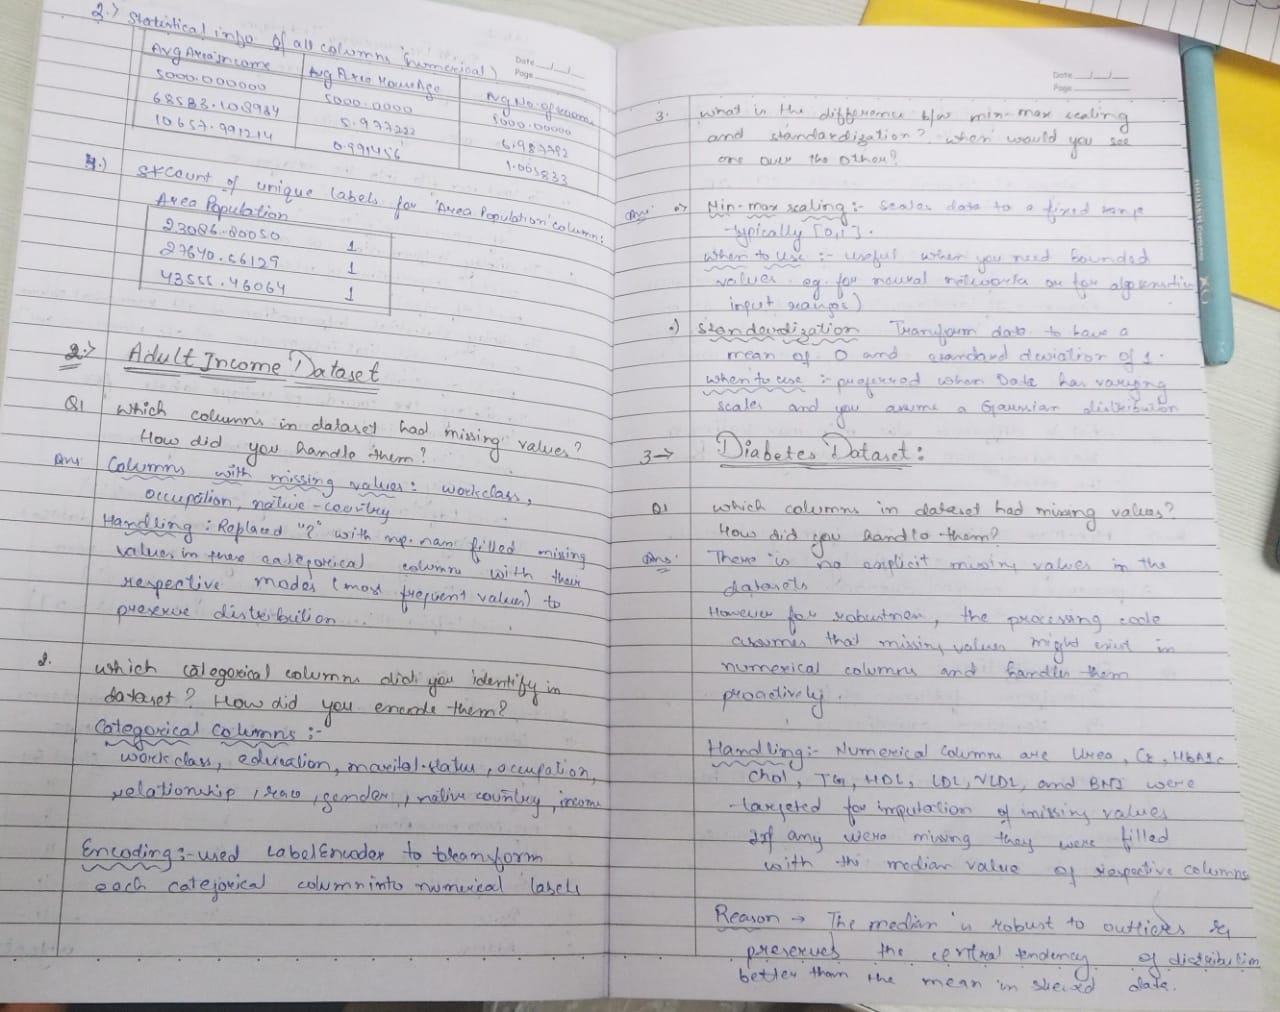 3.> Statistical info of all columns (numerical)
Date __/__/__
Page
Avg Area Income Avg Area House Age Avg No. of rooms
5000.000000 5000.0000 5000.00000
68583.108984 5.977222 6.987792
10657.991214 0.991456 1.005833
4.) Count of unique labels for 'Area Population' column:
Area Population
23086.80050 1
27640.66129 1
43555.46064 1
2.> Adult Income Dataset
Q1 Which columns in dataset had missing values?
How did you handle them?
Ans Columns with missing values: workclass,
occupation, native-country
Handling: Replaced "?" with np.nan filled missing
values in these categorical columns with their
respective modes (most frequent values) to
preserve distribution
2. which categorical columns did you identify in
dataset? How did you encode them?
Categorical Columns :-
workclass, education, marital-status, occupation,
relationship, race, gender, native country, income
Encoding:- used LabelEncoder to transform
each categorical column into numerical labels
Date __/__/__
Page
3. what is the difference b/w min-max scaling
and standardization? when would you use
one over the other?
Ans: •> Min-max scaling:- scales data to a fixed range
typically [0,1].
when to use :- useful when you need bounded
values eg. for neural networks or for algorithm
input ranges)
•) Standardization Transform data to have a
mean of 0 and standard deviation of 1.
when to use :- preferred when Data has varying
scales and you assume a Gaussian distribution
3→ Diabetes Dataset:
Q1 which columns in dataset had missing values?
How did you handle them?
Ans: There is no explicit missing values in the
datasets
However for robustness, the processing code
assumes that missing values might exist in
numerical columns and handles them
proactively.
Handling:- Numerical Columns are Urea, Cr, HbA1c
Chol, TG, HDL, LDL, VLDL, and BMI were
targeted for imputation of missing values
If any were missing they were filled
with the median value of respective columns
Reason → The median is robust to outliers &
preserves the central tendency of distribution
better than the mean in skewed data.